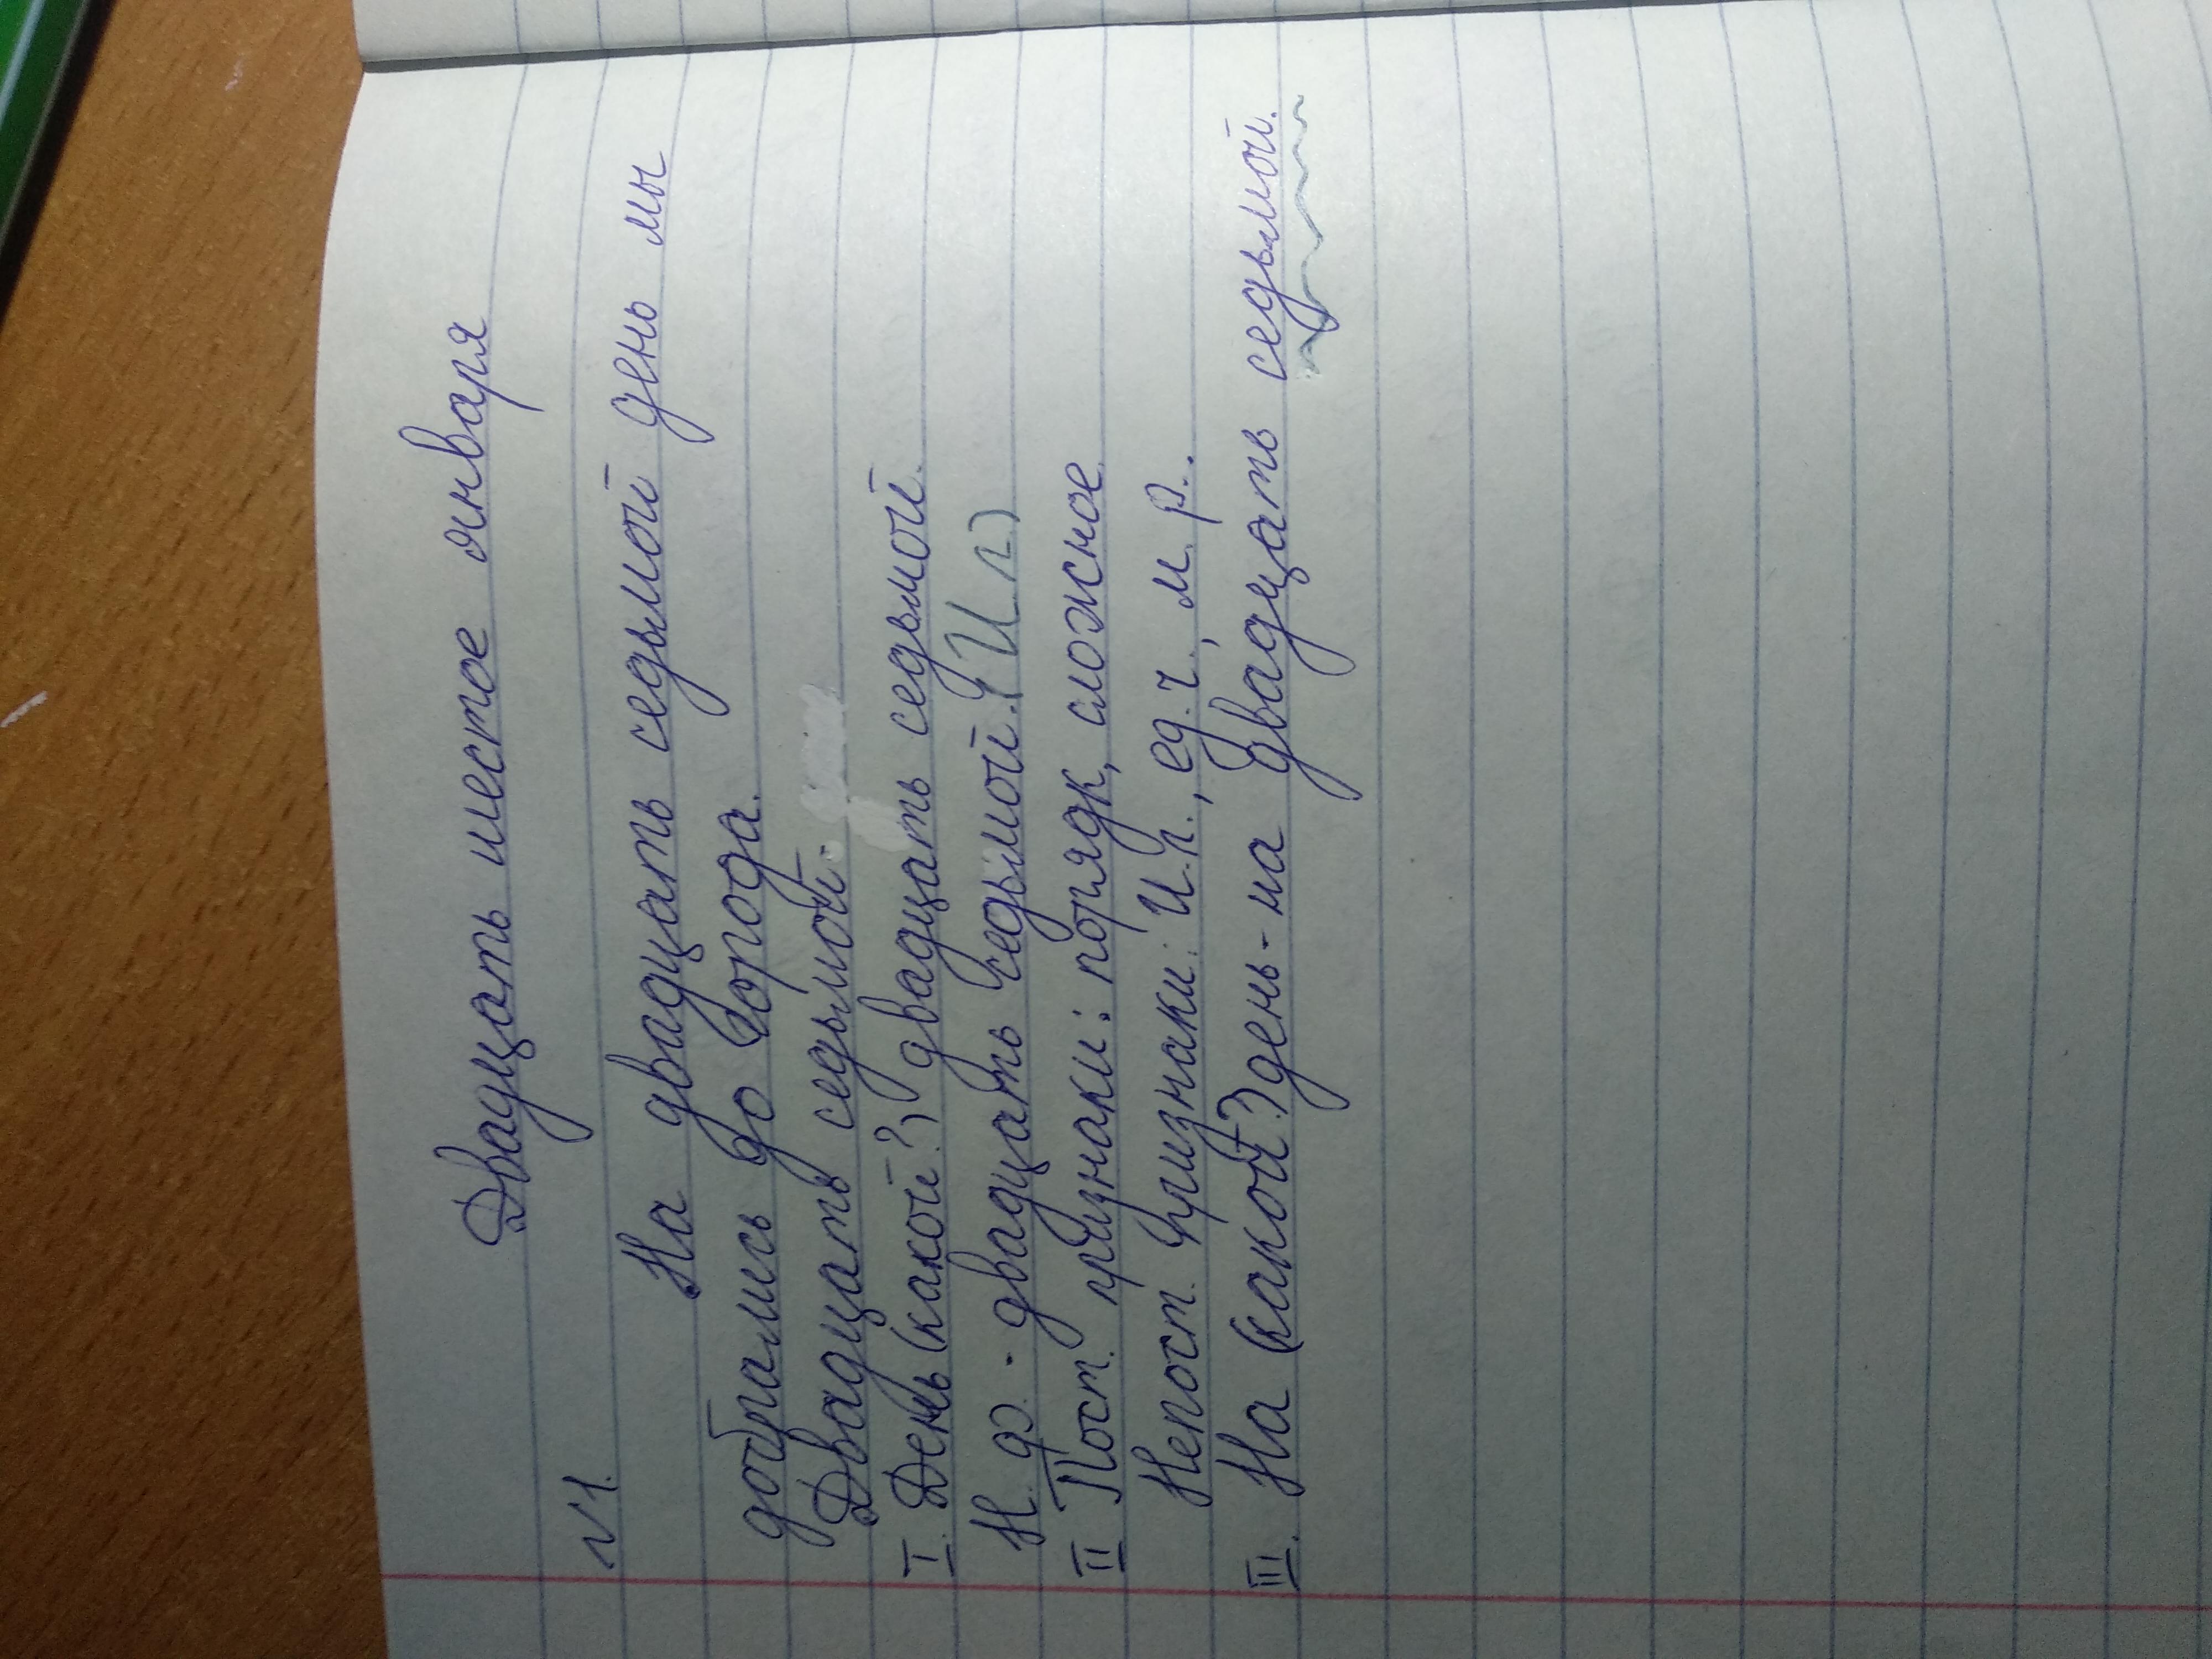 Двадцать шестое января
№1.
На двадцать седьмой день мы
добрались до города.
Двадцать седьмой.
I. День (какой?) двадцать седьмой.
Н. ф. - двадцать седьмой. (И. п.)
II Пост. признаки: порядк, сложное.
Непост. признаки: И. п., ед. ч., м. р..
III. На (какой?) день - на двадцать седьмой.